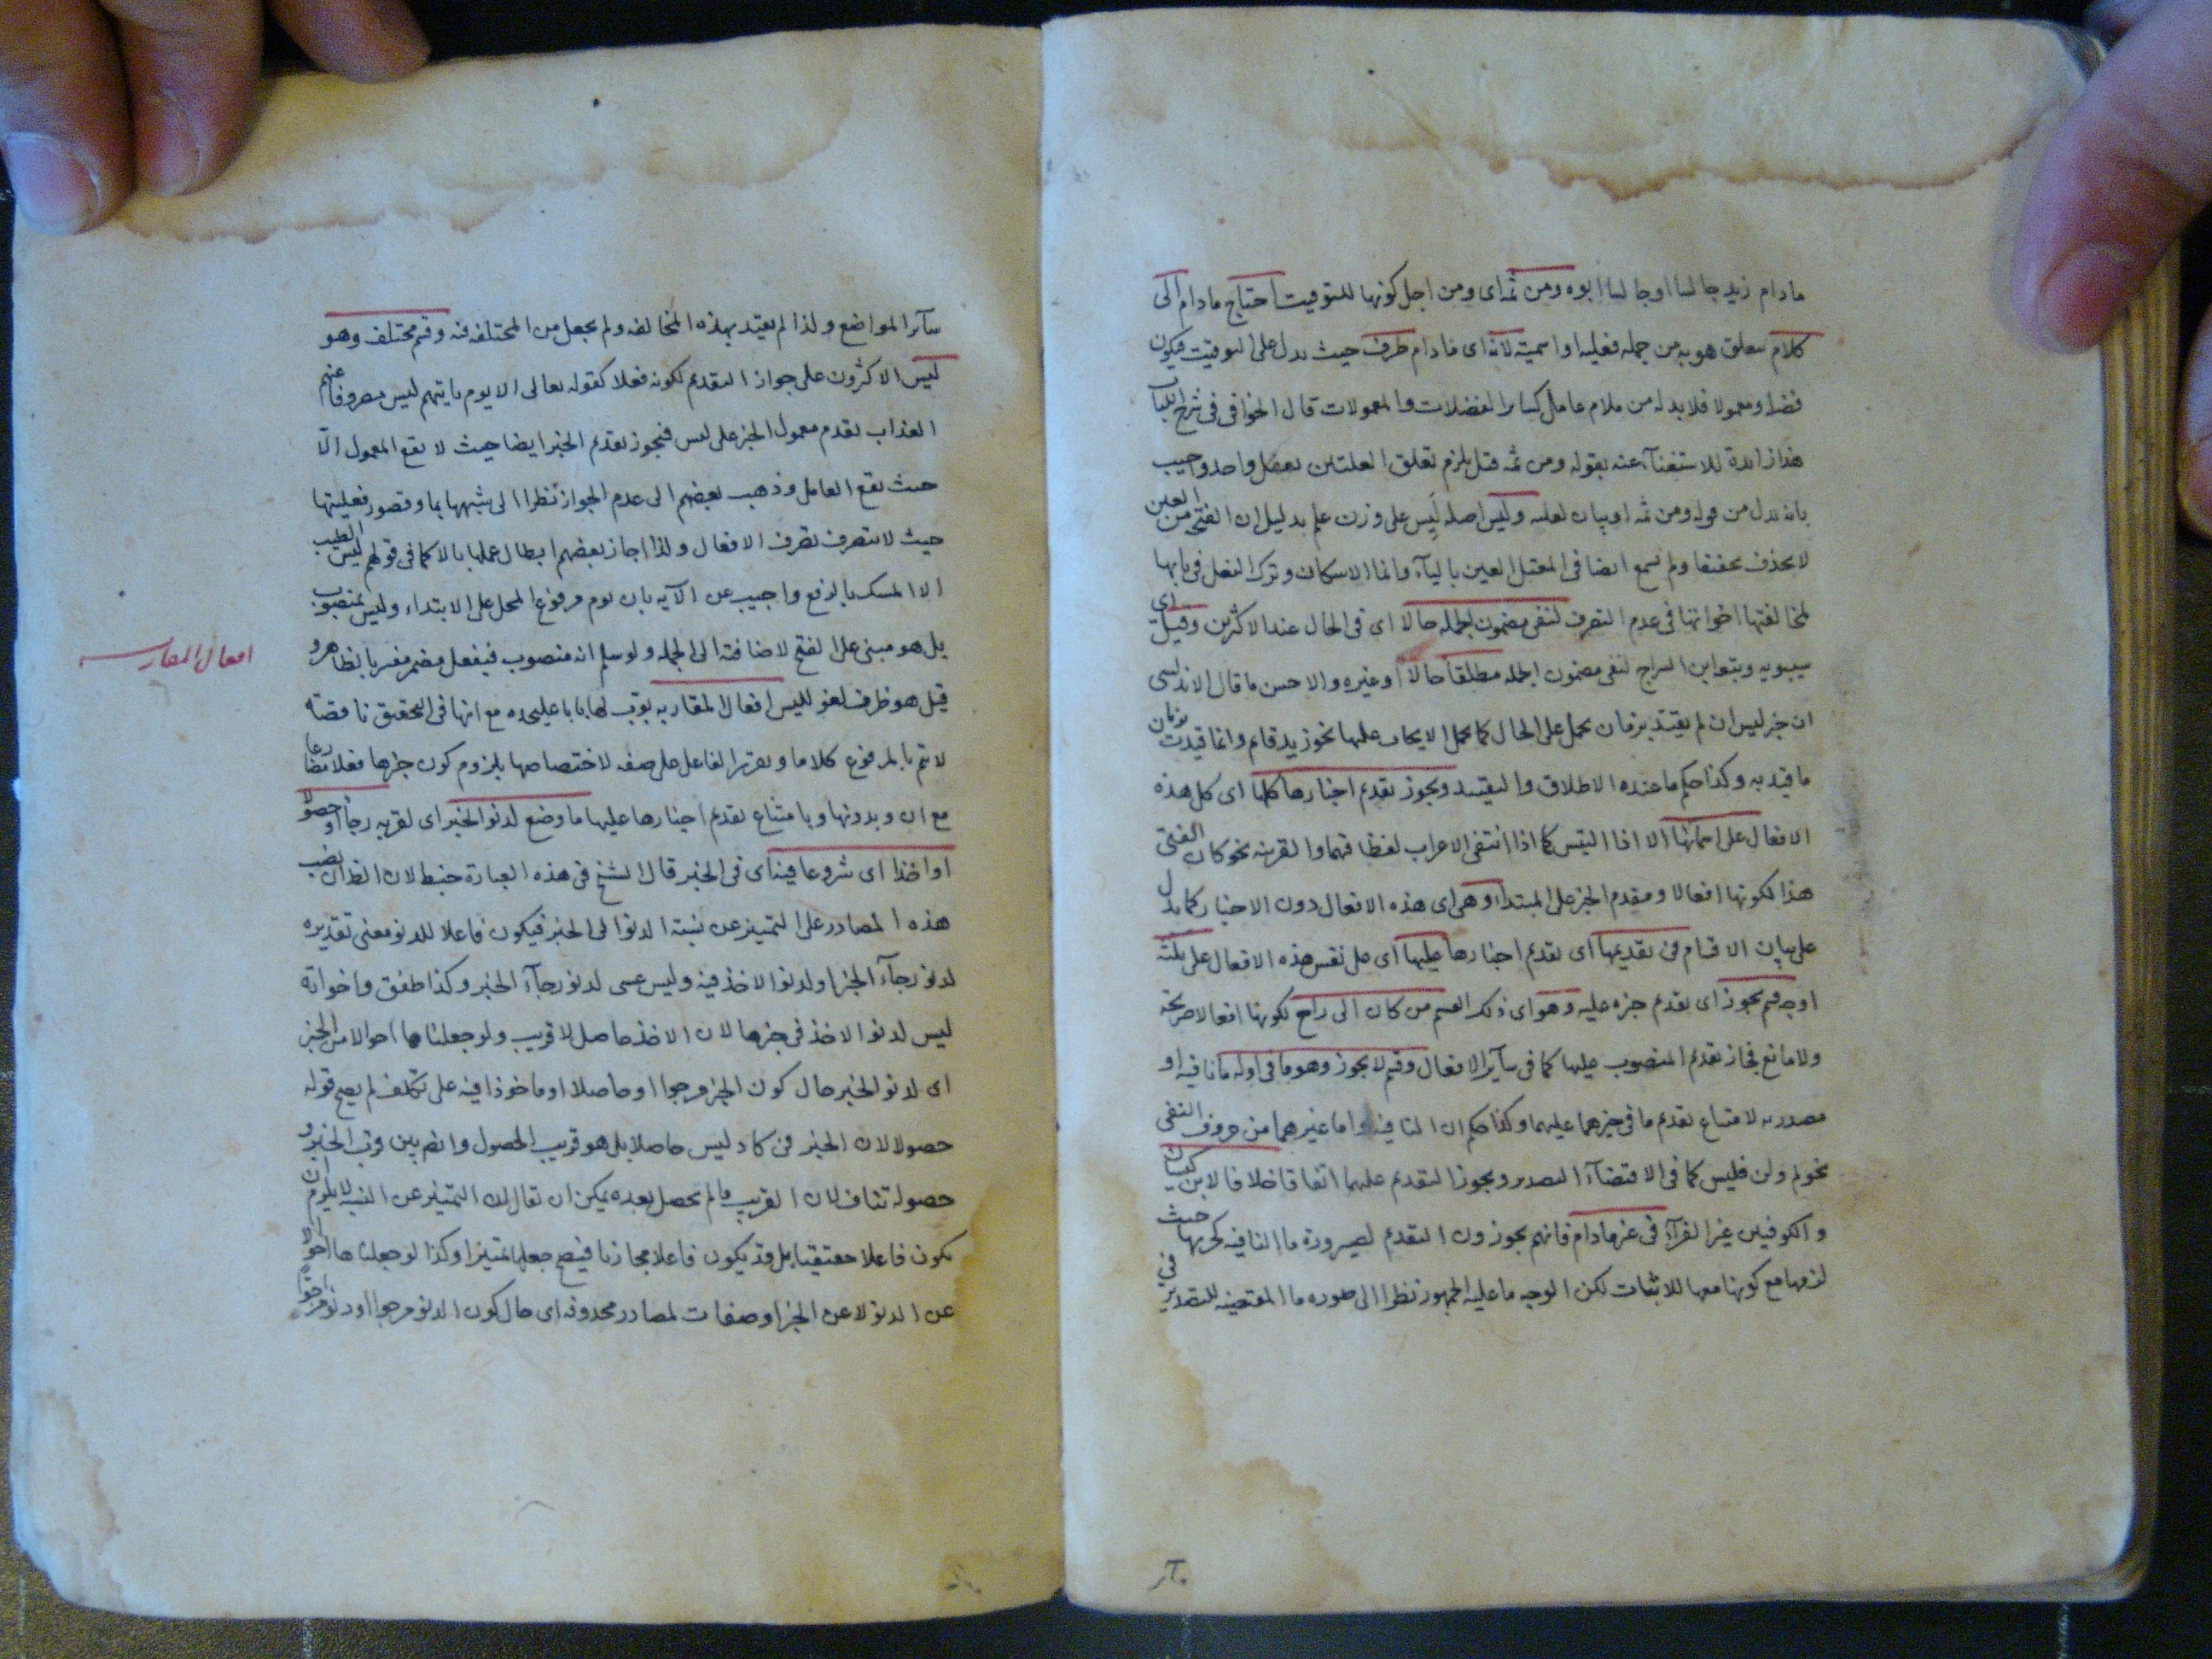 مادام زيد جالسا او جالسا ابوه ومن ثمه اى ومن اجل كونها للتوقيت احتاج مادام الى
كلام تتعلق هو به من جملة فعلية او اسمية لانه اى مادام ظرف حيث يدل على التوقيت فيكون
فضلة ومعمولا فلا بد له من كلام عامل كسائر الفضلات والمعمولات قال الخوافى فى شرح اللباب
هذا زائدة للاستغناء عنه بقوله ومن ثمه قيل يلزم تعلق العلتين بفعل واحد واجيب
بانه بدل من قوله ومن ثمه او بيان لعلته وليس اصله ليس على وزن علم بدليل ان الفتح من العين
لا يحذف تخفيفا ولم يسمع ايضا فى المعتل العين بالياء وانما الاسكان وترك النقل فى بابها
لمخالفتها اخواتها فى عدم التصرف لنفى مضمون الجملة حالا اى فى الحال عند الاكثرين وقيل اى
سيبويه وتبعه ابن السراج لنفى مضمون الجملة مطلقا حالا او غيره والاحسن ما قال الاندلسى
ان خبر ليس ان لم يقيد بزمان يحمل على الحال كما يحمل الايجاب عليها نحو زيد قائم وانما قيدت بزمان
ما قيد به وكذا حكم ما عنده الاطلاق والتقييد ويجوز تقديم اخبارها كلها اى كل هذه
الافعال على اسمائها الا اذا التبس كما اذا انتفى الاعراب لفظا فيهما والقرينة نحو كان الفتى
هذا لكونها افعالا ومقدم الخبر على المبتداء وهى اى هذه الافعال دون الاخبار كما يدل
على بيان الاقسام فى تقديمها اى تقديم اخبارها عليها اى على نفس هذه الافعال على ثلثة
اوجه قسم يجوز اى تقديم خبره عليه وهو اى ذلك القسم من كان الى راح لكونها افعالا صريحة
ولا مانع فجاز تقديم المنصوب عليها كما فى سائر الافعال وقسم لا يجوز وهو ما فى اوله ما نافية او
مصدرية لامتناع تقديم ما فى حيزهما عليهما وكذا حكم ان النافية واما غيرهما من حروف النفى
نحو لم ولن فليس كما فى الاقتضاء التصدير ويجوز التقديم عليهما اتفاقا خلافا لابن كيسان
والكوفيين غير الفراء فى غير مادام فانهم يجوزون التقديم لصيرورة ما النافية حيث
لزمها مع كونها معها للاثبات لكن الوجه ما عليه الجمهور نظرا الى صورة ما المقتضية للتصدير
سائر المواضع ولذا لم يعتد بهذه المخالفة ولم يجعل من المختلف فيه وقسم مختلف وهو
ليس الاكثرون على جواز التقديم لكونه فعلا كقوله تعالى الا يوم ياتيهم ليس مصروفا عنهم
العذاب تقدم معمول الخبر على ليس فيجوز تقديم الخبر ايضا حيث لا يقع المعمول الا
حيث يقع العامل وذهب بعضهم الى عدم الجواز نظرا الى شبهها بما وقصور فعليتها
حيث لا تتصرف تصرف الافعال ولذا اجاز بعضهم ابطال عملها بالا كما فى قولهم ليس الطيب
الا المسك بالرفع واجيب عن الآية بان يوم مرفوع المحل على الابتداء وليس بمنصوب
بل هو مبنى على الفتح لاضافته الى الجملة ولو سلم انه منصوب فبفعل مضمر مفسر بالظاهر و
قيل هو ظرف لغو لليس افعال المقاربة بوب لها بابا عليحده مع انها فى التحقيق ناقصة
لا يتم بالمرفوع كلاما وتقرر الفاعل على صفة لاختصاصها بلزوم كون خبرها فعلا مضارعا
مع ان وبدونها وبامتناع تقديم اخبارها عليها ما وضع لدنو الخبر اى لقربه رجاء او حصولا
او اخذا اى شروعا فيه اى فى الخبر قال الشيخ فى هذه العبارة خبط لان الظ ان نصب
هذه المصادر على التمييز عن نسبة الدنو الى الخبر فيكون فاعلا للدنو معنى تقديره
لدنو رجاء الخبر او لدنو الاخذ فيه وليس عسى لدنو رجاء الخبر وكذا طفق واخواته
ليس لدنو الاخذ فى خبرها لان الاخذ حاصل لا قريب ولو جعلناها احوالا من الخبر
اى لدنو الخبر حال كون الخبر مرجوا او حاصلا او ماخوذا فيه على تكلف لم يصح قوله
حصولا لان الخبر فى كاد ليس حاصلا بل هو قريب الحصول وايضا بين قرب الخبر و
حصوله تناف لان القريب ما لم يحصل بعده يمكن ان يقال ان التمييز عن النسبة لا يلزم ان
يكون فاعلا حقيقيا بل قد يكون فاعلا مجازيا فيصح جعلها تمييزا وكذا لو جعلناها احوالا
عن الدنو لا عن الخبر او صفات لمصادر محذوفة اى حال كون الدنو مرجوا او دنوا مرجوا
افعال المقاربة